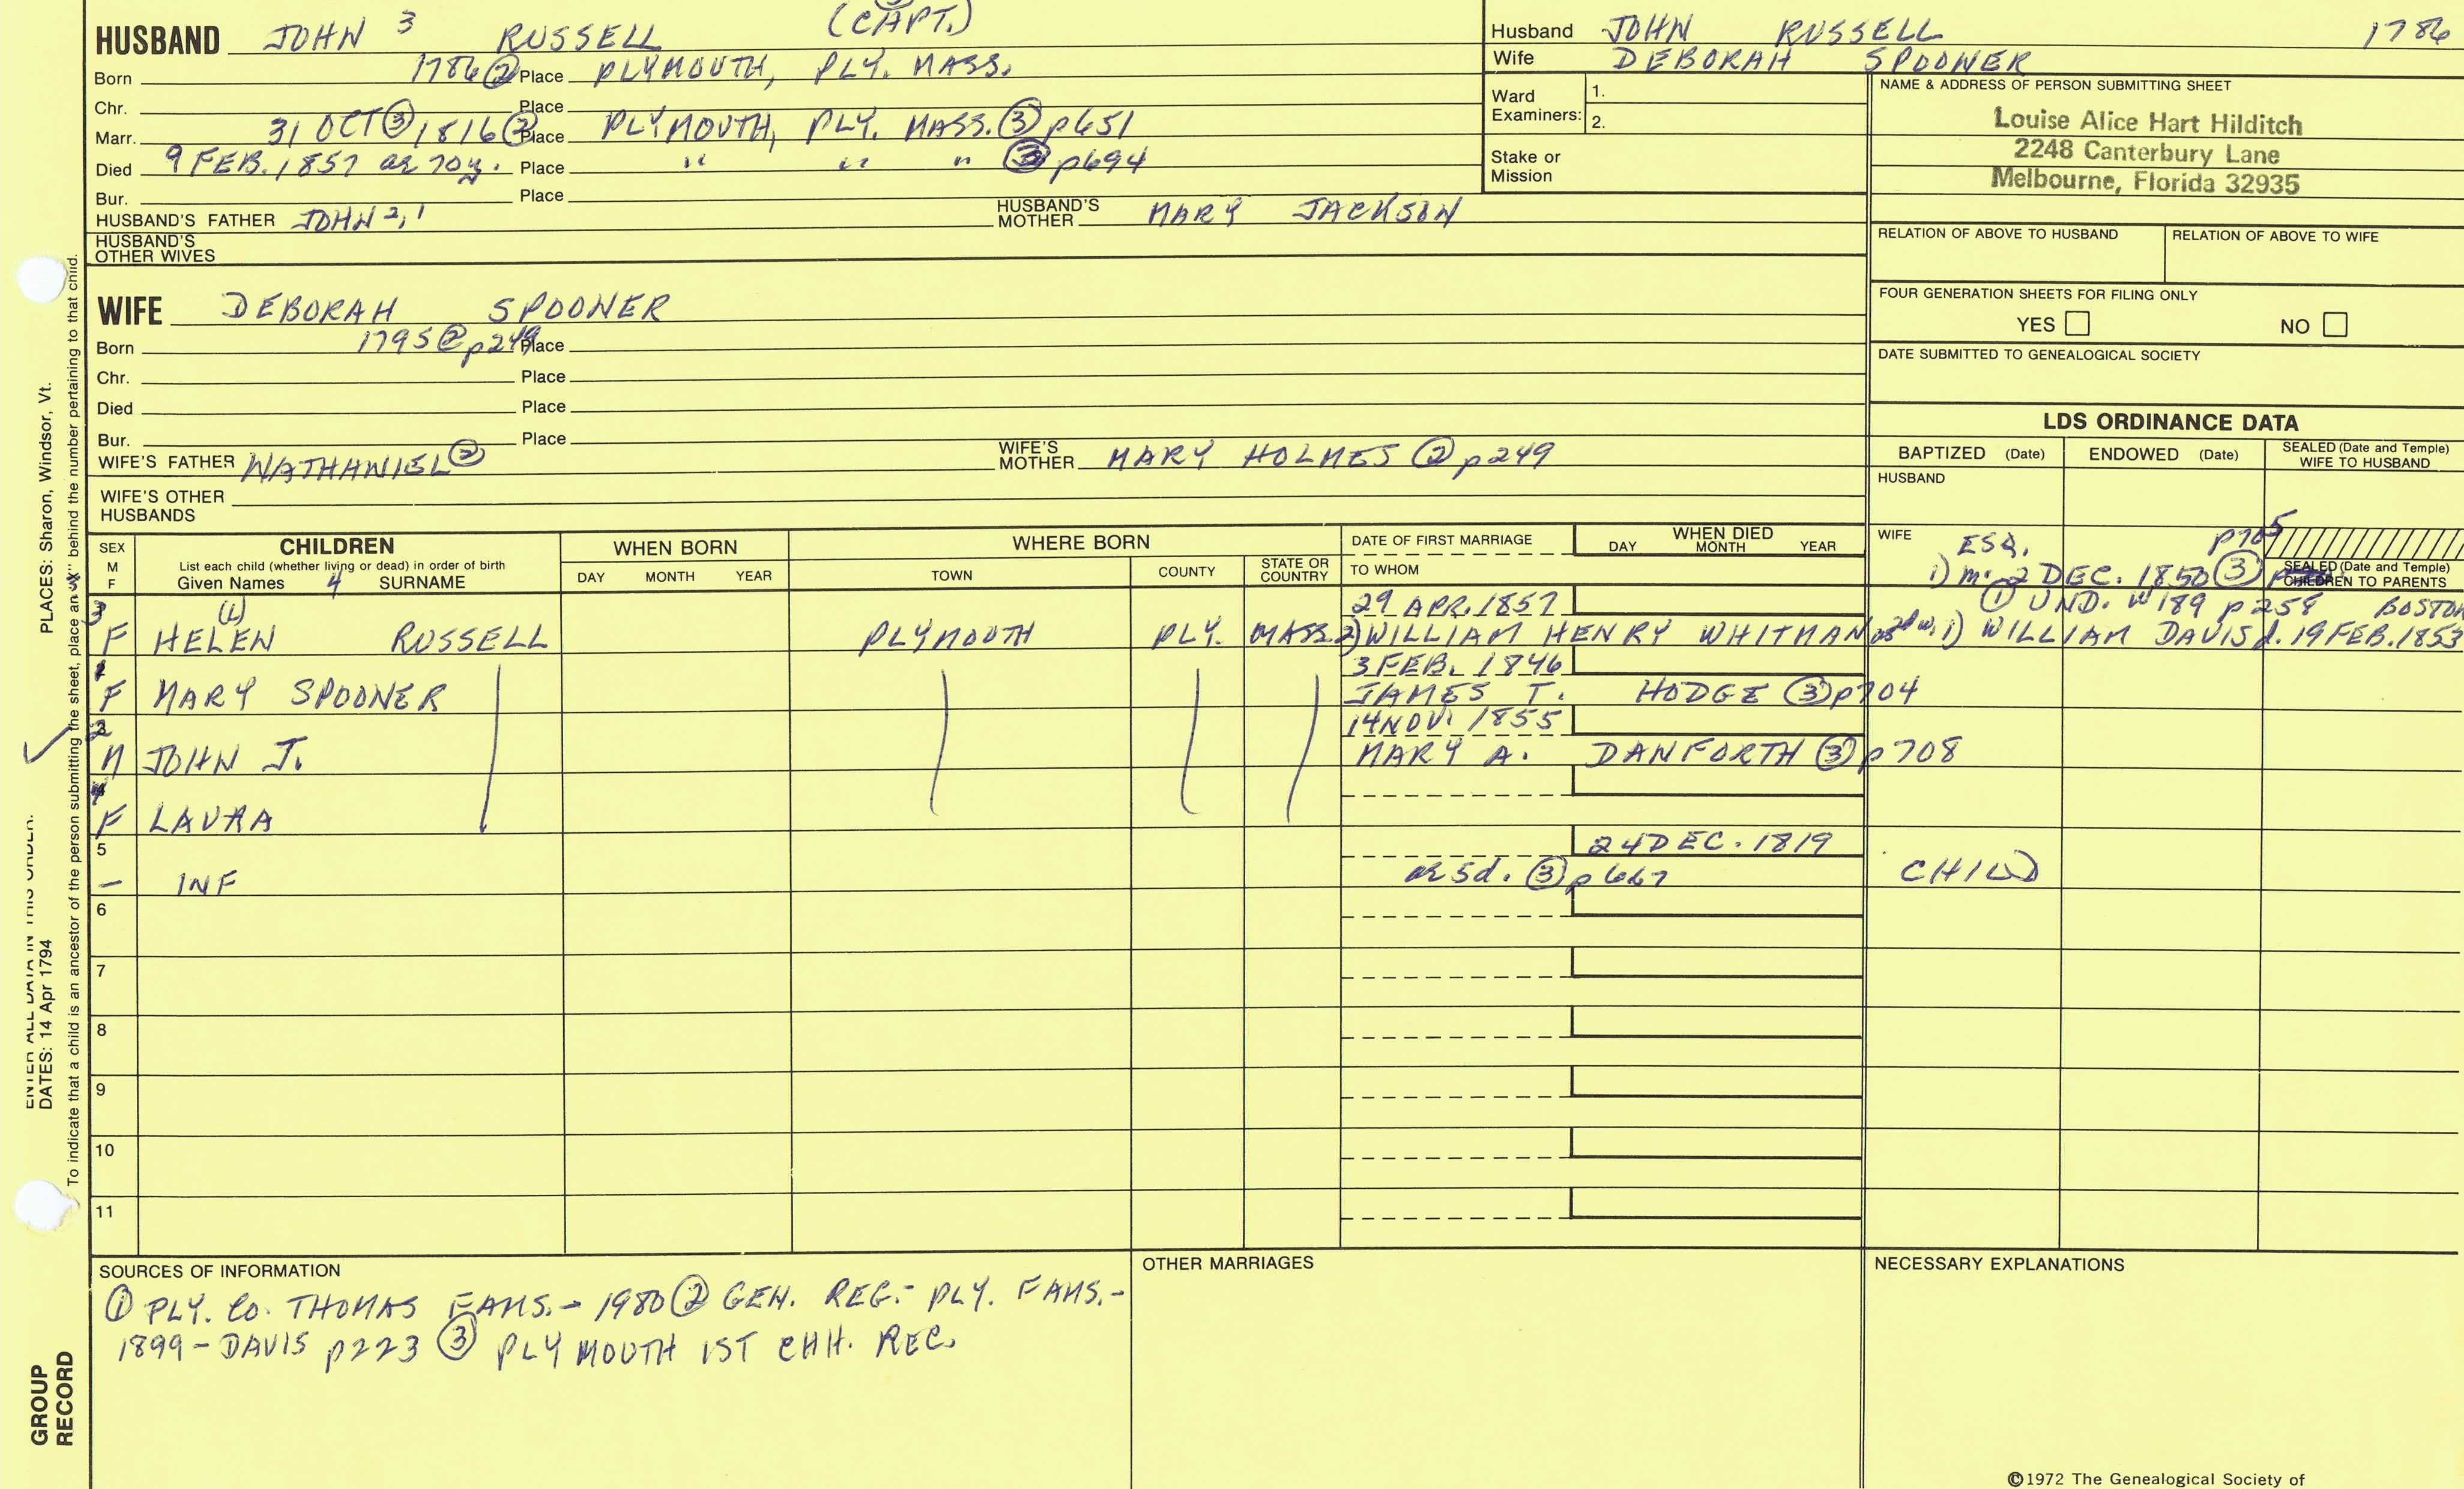 HUSBAND JOHN 3 RUSSELL (CAPT.)
Born 1786 ② Place PLYMOUTH, PLY. MASS.
Chr. Place
Marr. 31 OCT ③ 1816 ② Place PLYMOUTH, PLY. MASS. ③ p651
Died 9 FEB. 1857 ae 70y. Place " " " ③ p694
Bur. Place
HUSBAND'S FATHER JOHN 2,1 HUSBAND'S MOTHER MARY JACKSON
HUSBAND'S OTHER WIVES
Husband JOHN RUSSELL 1786
Wife DEBORAH SPOONER
Ward Examiners: 1.
2.
Stake or Mission
NAME & ADDRESS OF PERSON SUBMITTING SHEET
Louise Alice Hart Hilditch
2248 Canterbury Lane
Melbourne, Florida 32935
RELATION OF ABOVE TO HUSBAND RELATION OF ABOVE TO WIFE
FOUR GENERATION SHEETS FOR FILING ONLY
YES NO
DATE SUBMITTED TO GENEALOGICAL SOCIETY
WIFE DEBORAH SPOONER
Born 1795 ② p249 Place
Chr. Place
Died Place
Bur. Place
WIFE'S FATHER NATHANIEL ② WIFE'S MOTHER MARY HOLMES ② p249
WIFE'S OTHER HUSBANDS
LDS ORDINANCE DATA
BAPTIZED (Date) ENDOWED (Date) SEALED (Date and Temple) WIFE TO HUSBAND
HUSBAND
WIFE ESQ. p705
1) m. 2 DEC. 1850 ③
SEALED (Date and Temple) CHILDREN TO PARENTS
① UND. W189 p258 BOSTON
SEX M F CHILDREN WHEN BORN WHERE BORN DATE OF FIRST MARRIAGE WHEN DIED
List each child (whether living or dead) in order of birth
Given Names 4 SURNAME DAY MONTH YEAR TOWN COUNTY STATE OR COUNTRY TO WHOM DAY MONTH YEAR
3 (1) 29 APR. 1857
F HELEN RUSSELL PLYMOUTH PLY. MASS. 2) WILLIAM HENRY WHITMAN as 2d w. 1) WILLIAM DAVIS d. 19 FEB. 1853
1 3 FEB. 1846
F MARY SPOONER JAMES T. HODGE ③ p704
2 14 NOV. 1855
M JOHN J. MARY A. DANFORTH ③ p708
4
F LAURA
5 24 DEC. 1819
– INF ae 5d. ③ p667 CHILD
6
7
8
9
10
11
SOURCES OF INFORMATION
① PLY. CO. THOMAS FAMS. – 1980 ② GEN. REG. – PLY. FAMS. –
1899 – DAVIS p223 ③ PLYMOUTH 1ST CHH. REC.
OTHER MARRIAGES
NECESSARY EXPLANATIONS
©1972 The Genealogical Society of
PLACES: Sharon, Windsor, Vt.
ENTER ALL DATA IN THIS ORDER:
DATES: 14 Apr 1794
To indicate that a child is an ancestor of the person submitting the sheet, place an "X" behind the number pertaining to that child.
GROUP
RECORD